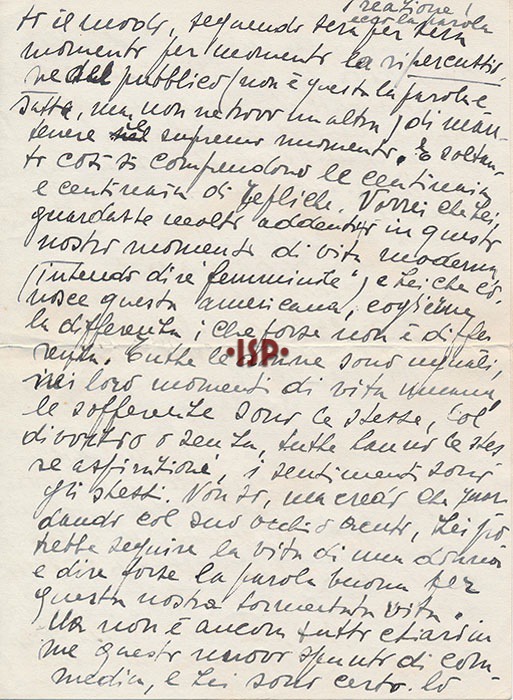 reazione!
ecco la parola
to il modo, seguendo sera per sera
momento per momento la ripercussio,
ne del pubblico (non è questa la parola e
satta, ma non ne trovo un'altra) di man-
tenere nel supremo momento. E soltan-
to così si comprendono le centinaia
e centinaia di repliche. Vorrei che Lei,
guardasse molto addentro in questo
nostro momento di vita moderna,
(intendo dire "femminile") e Lei che co-
nosce questa americana, cogliere
la differenza, che forse non è diffe
renza. Tutte le donne sono uguali,
nei loro momenti di vita umana,
le sofferenze sono le stesse, col
divorzio o senza, tutte hanno le stes
se aspirazioni, i sentimenti sono
gli stessi. Non so, ma credo che guar
dando col suo occhio acuto, Lei po
trebbe seguire la vita di una donna
e dire forse la parola buona per
questa nostra tormentata vita.
Ma non è ancora tutto chiaro in
me questo nuovo spunto di com
media, e Lei sono certo. Lo
•ISP•